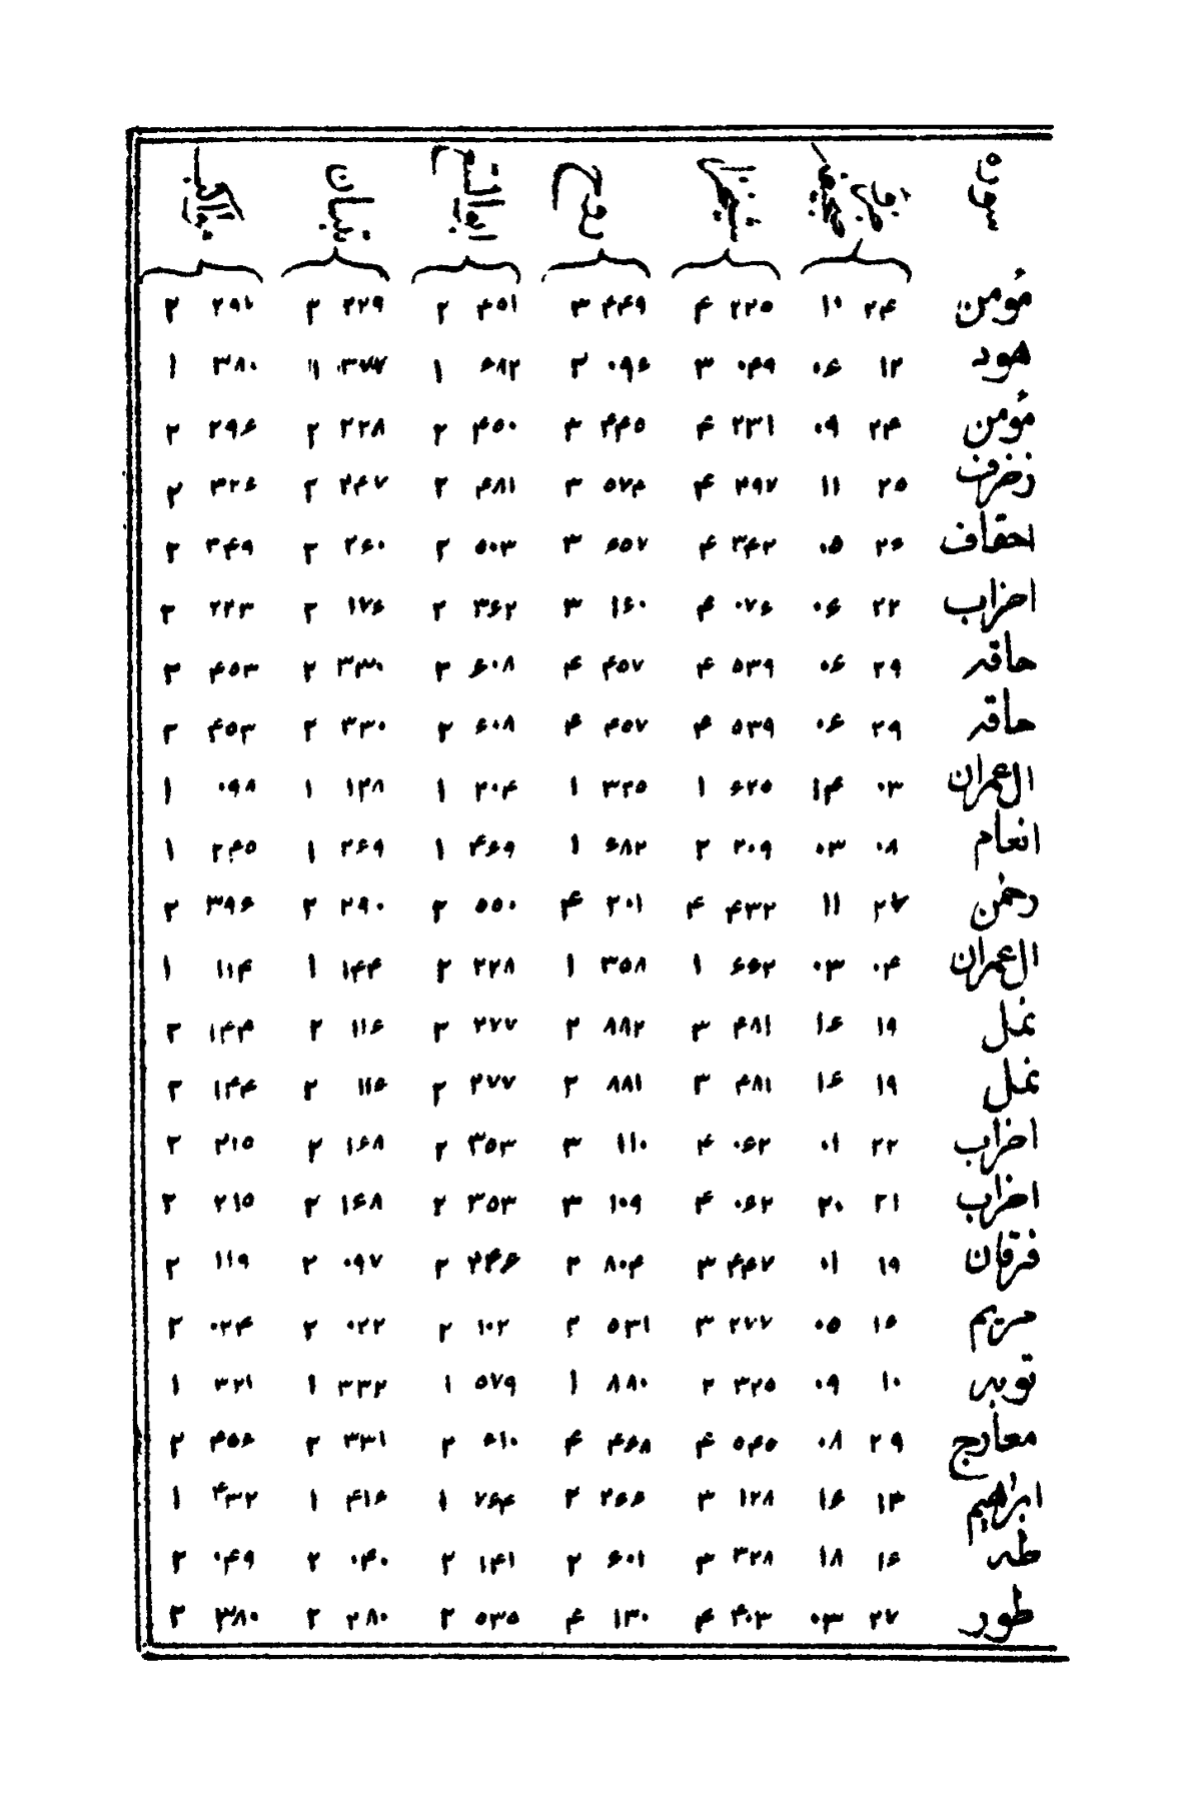 سوره
مؤمن ۲۴ ۱۰ ۲۲۵ ۴ ۴۴۹ ۳ ۴۵۱ ۲ ۲۲۹ ۲ ۲۹۱ ۲
هود ۱۲ ۰۶ ۰۴۹ ۳ ۰۹۶ ۲ ۶۸۲ ۱ ۳۷۷ ۱ ۳۸۰ ۱
مؤمن ۲۴ ۰۹ ۲۳۱ ۴ ۴۴۵ ۳ ۴۵۰ ۲ ۲۲۸ ۲ ۲۹۶ ۲
زخرف ۲۵ ۱۱ ۲۹۷ ۴ ۵۷۴ ۳ ۴۸۱ ۲ ۲۴۷ ۲ ۳۲۶ ۲
احقاف ۲۶ ۰۵ ۳۴۲ ۴ ۶۵۷ ۳ ۵۰۳ ۲ ۲۶۰ ۲ ۳۴۹ ۲
احزاب ۲۲ ۰۶ ۰۷۶ ۴ ۱۶۰ ۳ ۳۶۲ ۲ ۱۷۶ ۲ ۲۲۳ ۲
حاقه ۲۹ ۰۶ ۵۳۹ ۴ ۴۵۷ ۴ ۶۰۸ ۲ ۳۳۰ ۲ ۴۵۳ ۲
حاقه ۲۹ ۰۶ ۵۳۹ ۴ ۴۵۷ ۴ ۶۰۸ ۲ ۳۳۰ ۲ ۴۵۳ ۲
العمران ۰۳ ۱۴ ۶۲۵ ۱ ۳۲۵ ۱ ۲۰۴ ۱ ۱۲۸ ۱ ۰۹۸ ۱
انعام ۰۸ ۰۳ ۲۰۹ ۲ ۶۸۲ ۱ ۴۶۹ ۱ ۲۶۹ ۱ ۲۴۵ ۱
رحمن ۲۷ ۱۱ ۴۳۲ ۴ ۲۰۱ ۴ ۵۵۰ ۲ ۲۹۰ ۲ ۳۹۶ ۲
العمران ۰۴ ۰۳ ۶۶۲ ۱ ۳۵۸ ۱ ۲۲۸ ۲ ۱۴۴ ۱ ۱۱۴ ۱
نمل ۱۹ ۱۶ ۴۸۱ ۳ ۸۸۲ ۲ ۲۷۷ ۲ ۱۱۶ ۲ ۱۴۴ ۲
نمل ۱۹ ۱۶ ۴۸۱ ۳ ۸۸۱ ۲ ۲۷۷ ۲ ۱۱۶ ۲ ۱۴۴ ۲
احزاب ۲۲ ۰۱ ۰۶۲ ۴ ۱۱۰ ۳ ۳۵۳ ۲ ۱۶۸ ۲ ۲۱۵ ۲
احزاب ۲۱ ۲۰ ۰۶۲ ۴ ۱۰۹ ۳ ۳۵۳ ۲ ۱۶۸ ۲ ۲۱۵ ۲
فرقان ۱۹ ۰۱ ۴۴۷ ۳ ۸۰۴ ۲ ۲۴۶ ۲ ۰۹۷ ۲ ۱۱۹ ۲
مریم ۱۶ ۰۵ ۲۷۷ ۳ ۵۳۱ ۲ ۱۰۲ ۲ ۰۲۲ ۲ ۰۲۴ ۲
توبه ۱۰ ۰۹ ۳۲۵ ۲ ۸۸۰ ۱ ۵۷۹ ۱ ۳۳۲ ۱ ۳۲۱ ۱
معارج ۲۹ ۰۸ ۵۴۵ ۴ ۴۶۸ ۴ ۶۱۰ ۲ ۳۳۱ ۲ ۴۵۶ ۲
ابراهیم ۱۳ ۱۶ ۱۲۸ ۳ ۲۶۶ ۲ ۷۶۴ ۱ ۴۱۶ ۱ ۴۳۲ ۱
طه ۱۶ ۱۸ ۳۲۸ ۳ ۶۰۱ ۲ ۱۴۱ ۲ ۰۴۰ ۲ ۰۴۹ ۲
طور ۲۷ ۰۳ ۴۰۳ ۴ ۱۳۰ ۴ ۵۳۵ ۲ ۲۸۰ ۲ ۳۸۰ ۲